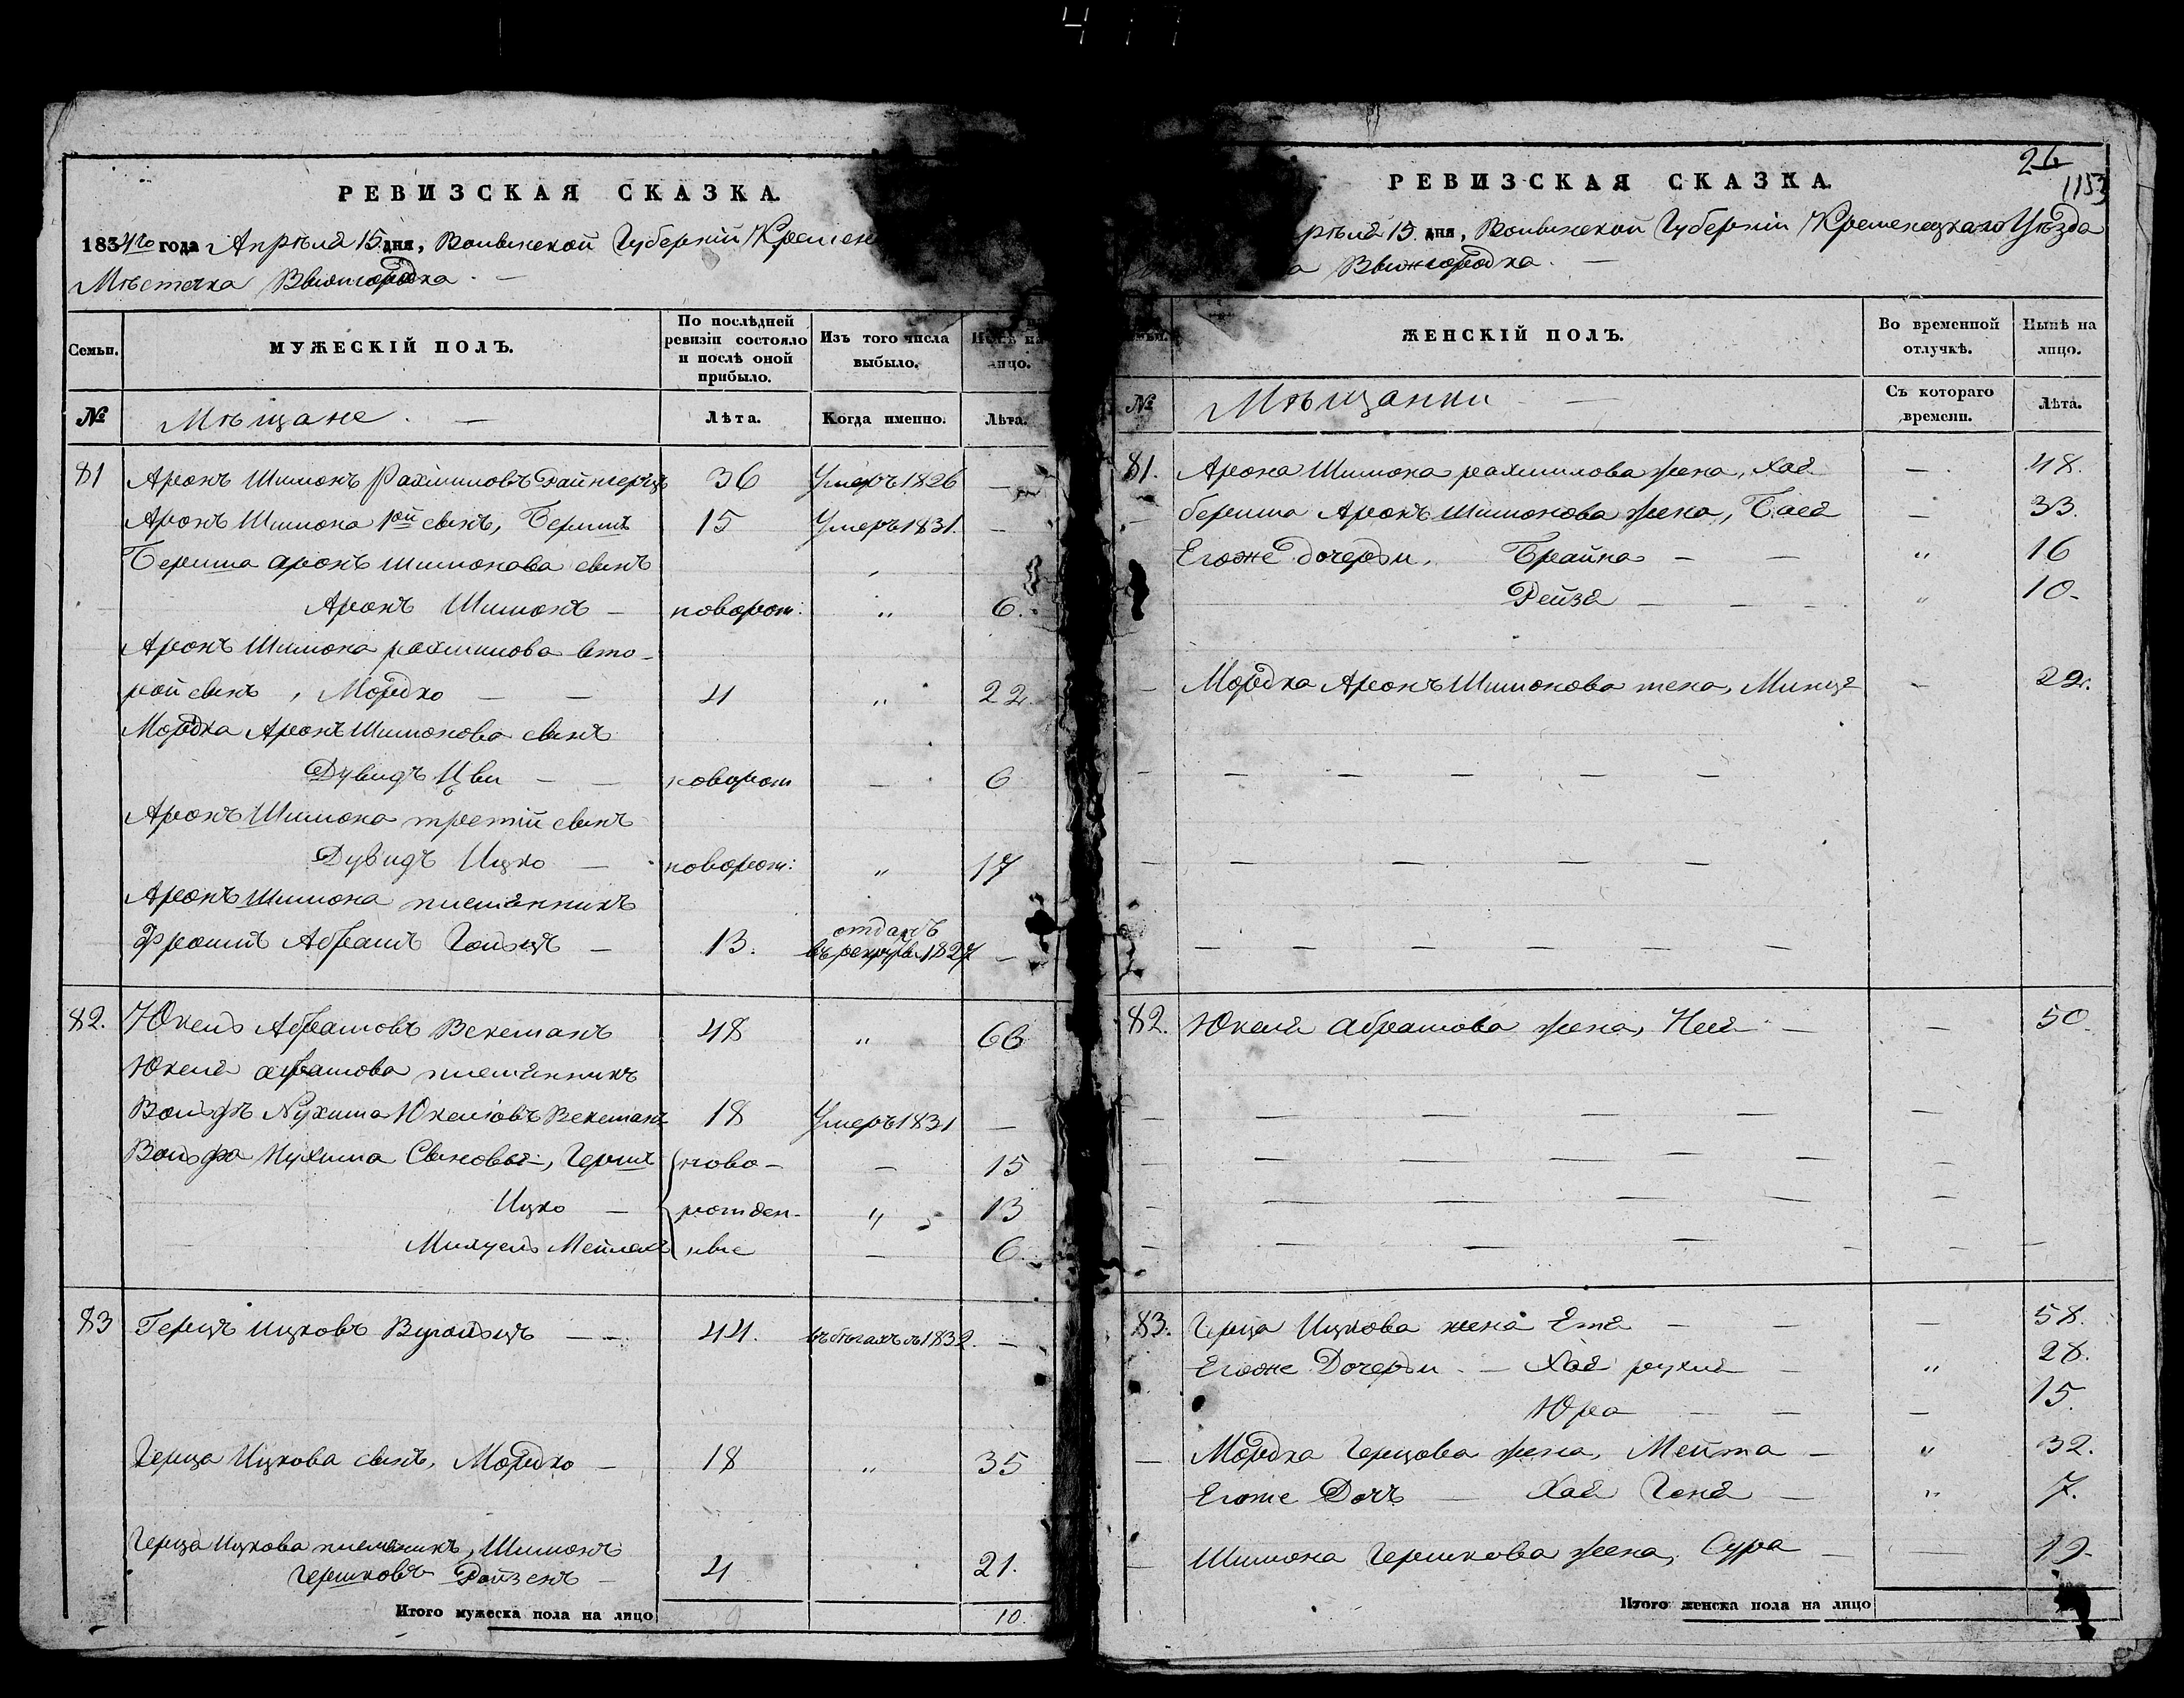 РЕВИЗСКАЯ СКАЗКА.
1834го года Апрѣля 15 дня, Волынской Губерніи Кременец
Мѣстечка Вышгородка
Семьи.
МУЖЕСКІЙ ПОЛЪ.
По послѣдней ревизіи состояло и послѣ оной прибыло.
Изъ того числа выбыло.
лицо.
№
Мѣщане.
Лѣта.
Когда именно.
Лѣта.
81 Аронъ Шимонъ Рахмиловъ 36 Умеръ 1826 —
Аронъ Шимона 1ой сынъ, Беришъ 15 Умеръ 1831. —
Бериша Аронъ Шимонова сынъ
Аронъ Шимонъ — поворож: " 6.
Аронъ Шимона рахмилова вто-
рой сынъ, Мордко — — 4 " 22.
Мордка Аронъ Шимонова сынъ
Дувидъ Цви — — новорож — 6
Аронъ Шимона третій сынъ
Дувидъ Ицко — новорож: " 17
Аронъ Шимона племянникъ
Фроимъ Абрамъ — 13. отданъ
въ рекруты 1827 —
82. Юкель Абрамовъ Векеманъ 48 " 66
Юкеля абрамова племянникъ
Вольфъ Нухима Юкелювъ Векеманъ 18 Умеръ 1831 —
Вольфа Нухима Сыновья, Гершъ ново- — 15
Ицко — рожден- " 13
Мейлехъ ные — 6.
83 Герцъ Ицковъ — 44. 1832. —
Герца Ицкова сынъ, Мордко — 18 " 35
Герца Ицкова племяникъ, Шимонъ
Гершковъ Ройзенъ — 4 21.
Итого мужеска пола на лицо 9 10.
26
1153
РЕВИЗСКАЯ СКАЗКА.
рѣля 15. дня, Волынской Губерніи Кременецкаго Уѣзда
а Вышгородка. —
ЖЕНСКІЙ ПОЛЪ.
Во временной отлучкѣ.
Нынѣ на лицо.
№
Мѣщанки —
Съ котораго времени.
Лѣта.
81. Арона Шимона рахмилова жена, Хая — 48.
— бериша Аронъ Шимонова жена, Бася — 33.
Егоже дочери, Брайна — — " 16
Рейзя — — — " 10.
— Мордка Аронъ Шимонова жена, Минця — 22.
82. Юкеля абрамова жена, Нея — — 50.
83. Герца Ицкова жена Етя — — — 58.
Егоже Дочери — Хая рухля — " 28.
Юра — — — 15.
— Мордка Герцова жена, Мейта — " 32.
Егоже Дочь — Хая Геня — " 7.
— Шимона Гершкова жена, Сура — — 19.
Итого женска пола на лицо